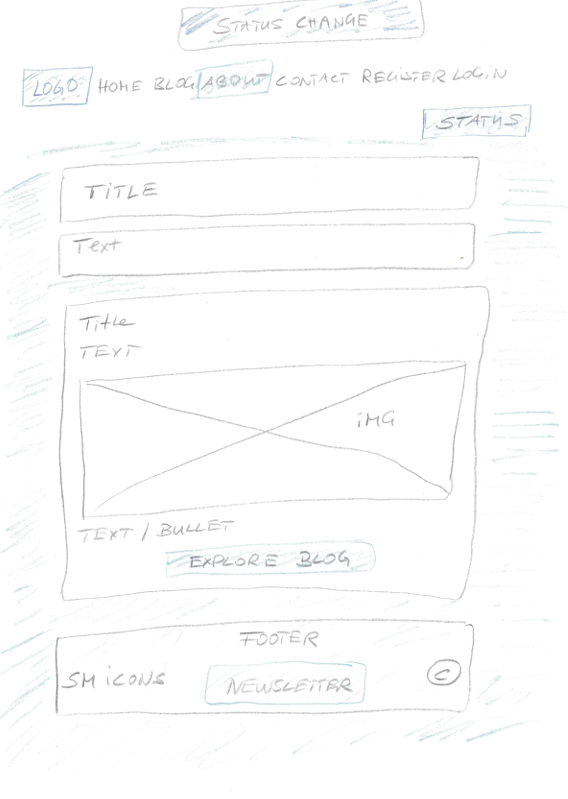 STATUS CHANGE
LOGO HOME BLOG ABOUT CONTACT REGISTER LOGIN
STATUS
TITLE
Text
Title
TEXT
iMG
TEXT / BULLET
EXPLORE BLOG
FOOTER
SM iCONS NEWSLETTER ©